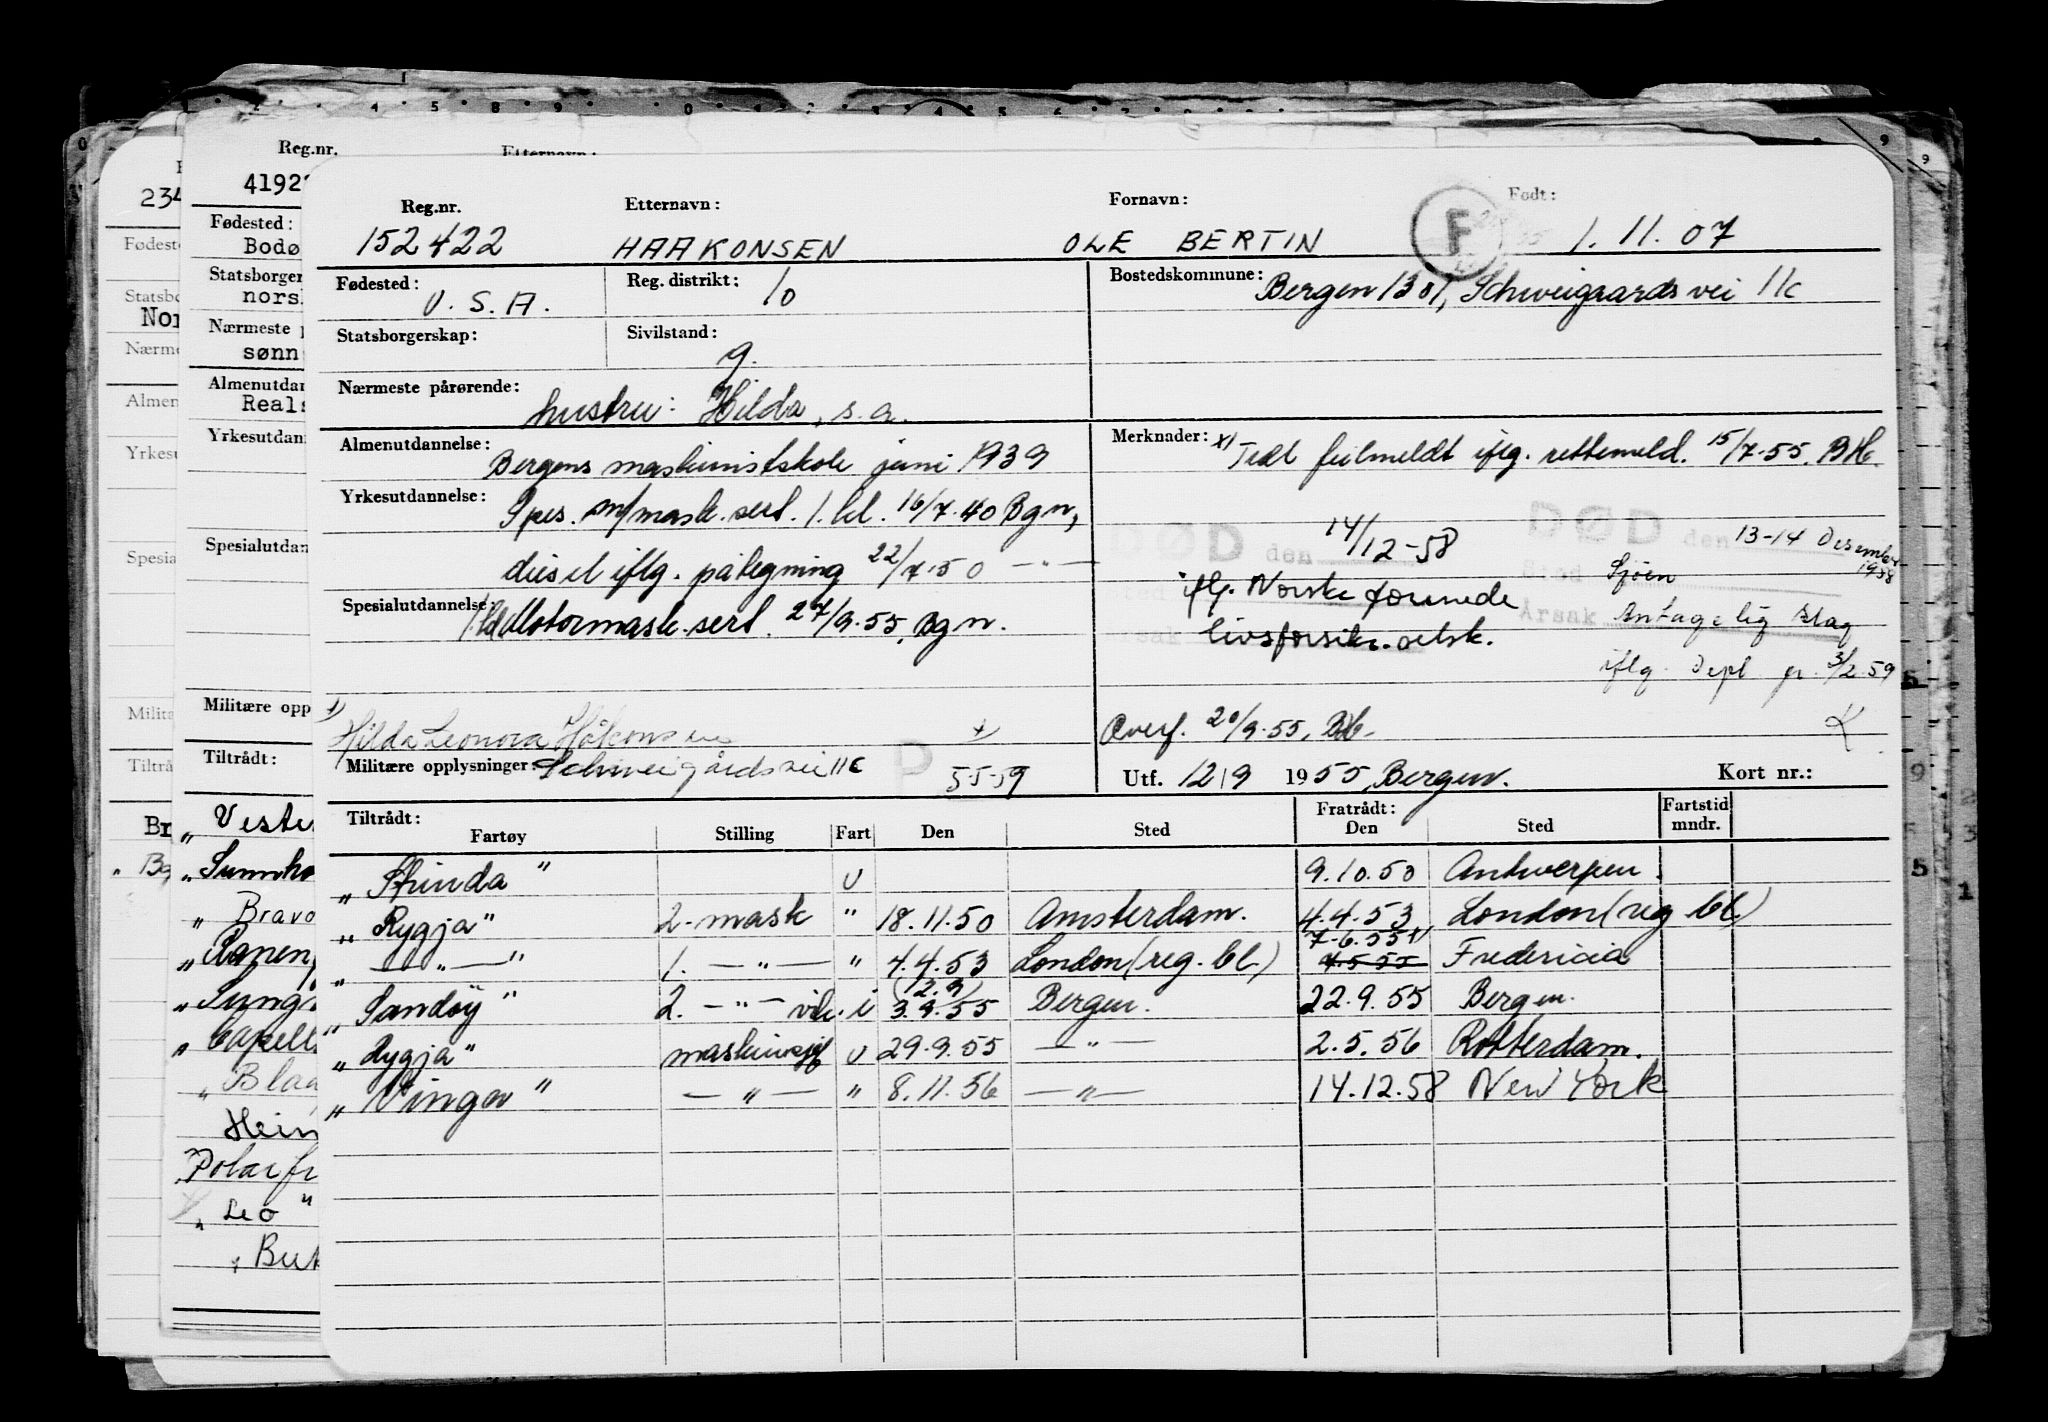 Reg.nr. Etternavn: Fornavn: Født:
152422 HAAKONSEN OLE BERTIN F 1.11.07
Fødested: U.S.A. Reg. distrikt: 10 Bostedskommune: Bergen 1301, Schweigaards vei 11c
Statsborgerskap: Sivilstand: g.
Nærmeste pårørende: hustru: Hilda, s.a.
Almenutdannelse: Bergens maskinistskole juni 1939
Yrkesutdannelse: Spes. m/mask. sert. 1. kl. 16/7.40 Bgn,
diesel iflg. påtegning 22/7.50 — " —
Spesialutdannelse: 1. kl. Motormask. sert. 27/9.55, Bgn.
Merknader: x) Fratr. feilmeldt iflg. rettemeld. 15/7-55. BH.
DØD den 14/12-58
iflg. Norske forenede
livsforsikr. selsk.
DØD den 13-14 Desember 1958
Sted Sjøen
Årsak Antagelig slag
iflg. Depl gr. 3/2.59
x) Hilda Leonora Håkonsen x)
Overf. 20/9-55, BH. K
Militære opplysninger: Schweigårdsvei 11c P 5-5-59
Utf. 12/9 1955, Bergen. Kort nr.:
Tiltrådt: Fratrådt: Fartstid
Fartøy Stilling Fart Den Sted Den Sted mndr.
" Stunda " u 9.10.50 Antwerpen.
" Rygja " 2. mask " 18.11.50 Amsterdam. 4.4.53 London (reg. bl.)
" — " — " 1. — " — " 4.4.53 London (reg. bl.) 7-6.55 x) 4.5.55 Fredericia
" Sandøy " 2. — " — vik. i (2.9) 3.9.55 Bergen. 22.9.55 Bergen.
" Rygja " maskinsjef u 29.9.55 — " — 2.5.56 Rotterdam.
" Vinga " — " — " 8.11.56 — " — 14.12.58 New York
Reg.nr. Etternavn:
41922
Fødested:
Bodø
Statsborger
nors
Nærmeste
sønn
Almenutdan
Reals
Yrkesutdan
Spesialutdan
Militære opp
Tiltrådt:
" Veste
" Sunnho
" Bravo
" Ranen
" Sung
" Capell
" Blaa
Hein
Polarfr
" Leo "
" But
234
Fødest
Statsb
Nor
Nærme
Almen
Yrkesu
Spesia
Milita
Tiltrå
Br
" Be